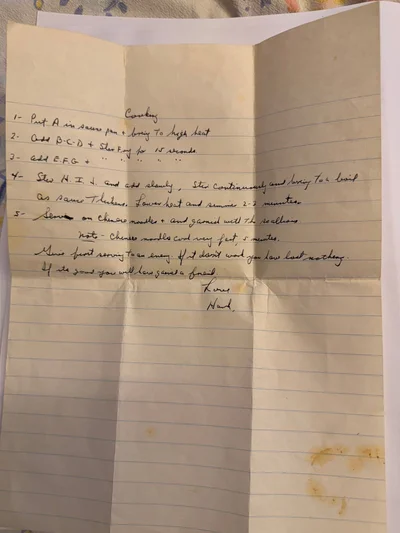 Cooking
1- Put A in sauce pan + bring To high heat
2- add B-C-D + Stir Fry for 15 seconds
3- add E.F.G + " " " " "
4- Stir H. I. J. and add slowly. Stir continuously and bring To a boil
as sauce Thickens. Lower heat and simmer 2-3 minutes
5- Serve on chinese noodles + and garnish with The scallions
Note - Chinese noodles cook very fast, 5 minutes.
Give first serving To an enemy. If it don't work you have lost nothing
If its good you will have gained a friend
Love
Hank